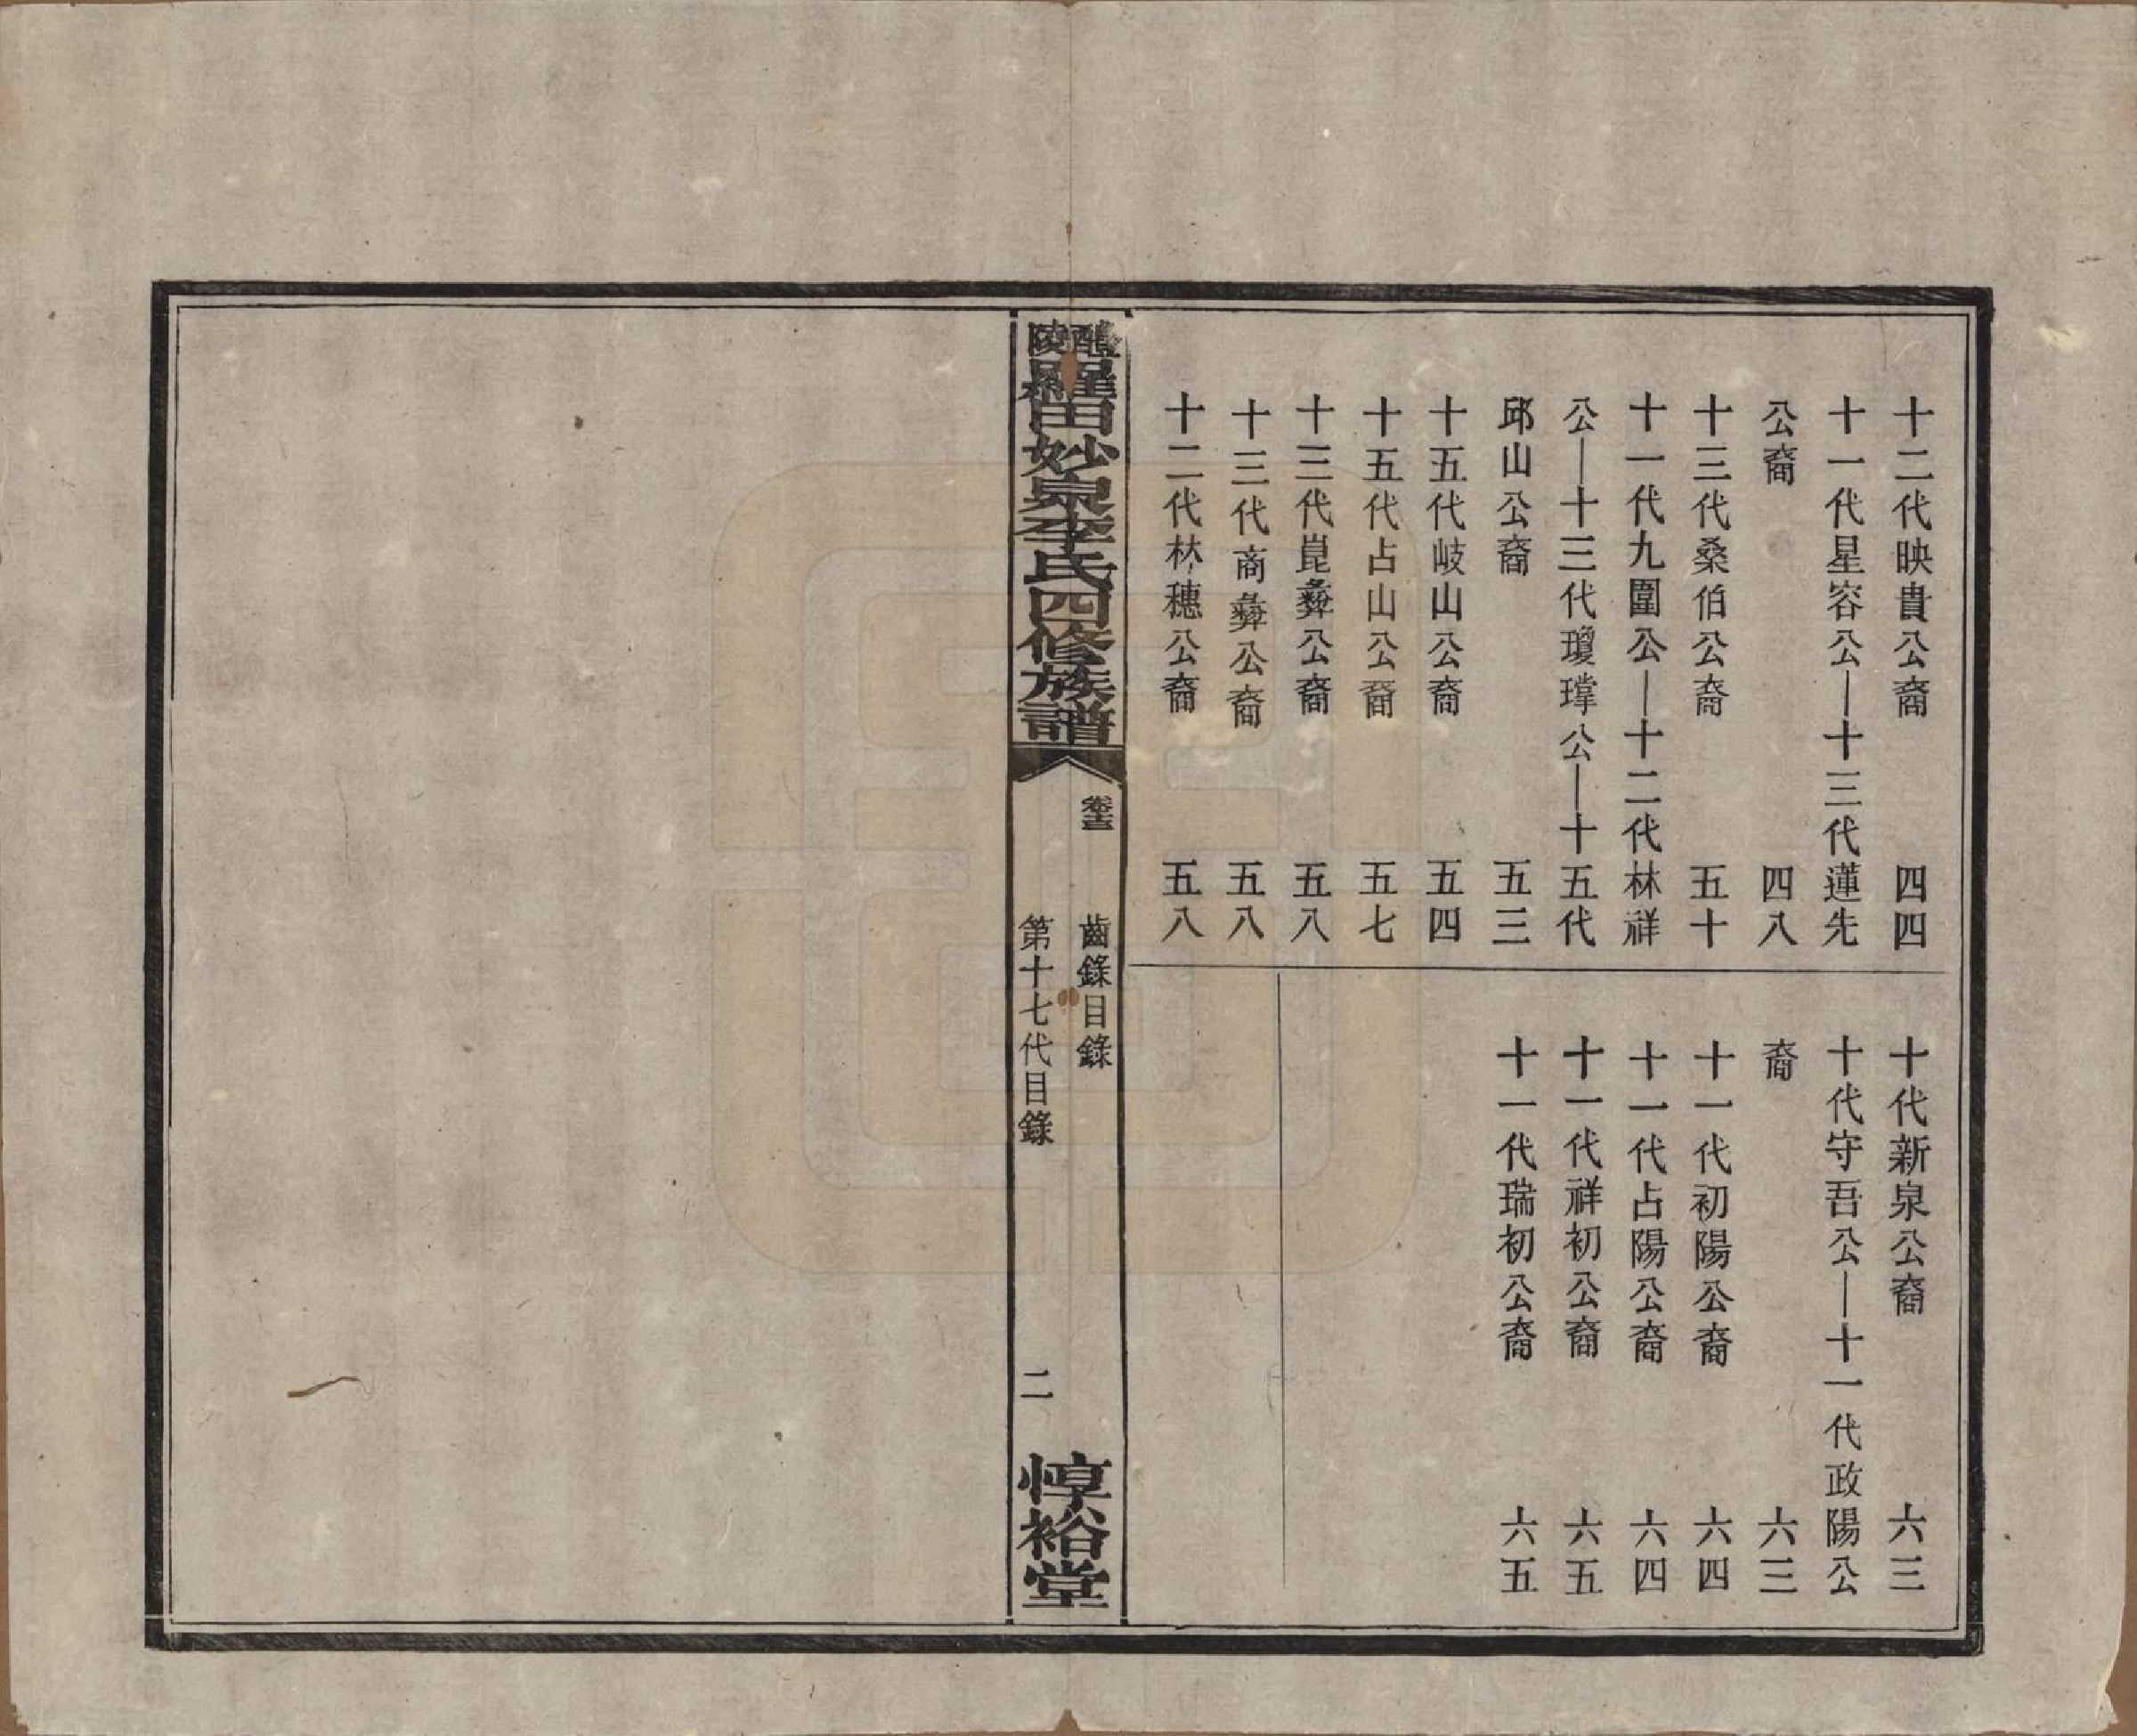 十二代映貴公裔 四四
十一代星容公—十三代蓮先
公裔 四八
十三代桑伯公裔 五十
十一代九圍公—十二代林祥
公—十三代瓊㼆公—十五代
邱山公裔 五三
十五代岐山公裔 五四
十五代占山公裔 五七
十三代崑彝公裔 五八
十三代商彝公裔 五八
十二代林穗公裔 五八
十代新泉公裔 六三
十代守吾公—十一代政陽公
裔 六三
十一代初陽公裔 六四
十一代占陽公裔 六四
十一代祥初公裔 六五
十一代瑞初公裔 六五
醴陵羅田妙泉李氏四修族譜
卷十三 齒錄目錄
第十七代目錄 二
惇裕堂